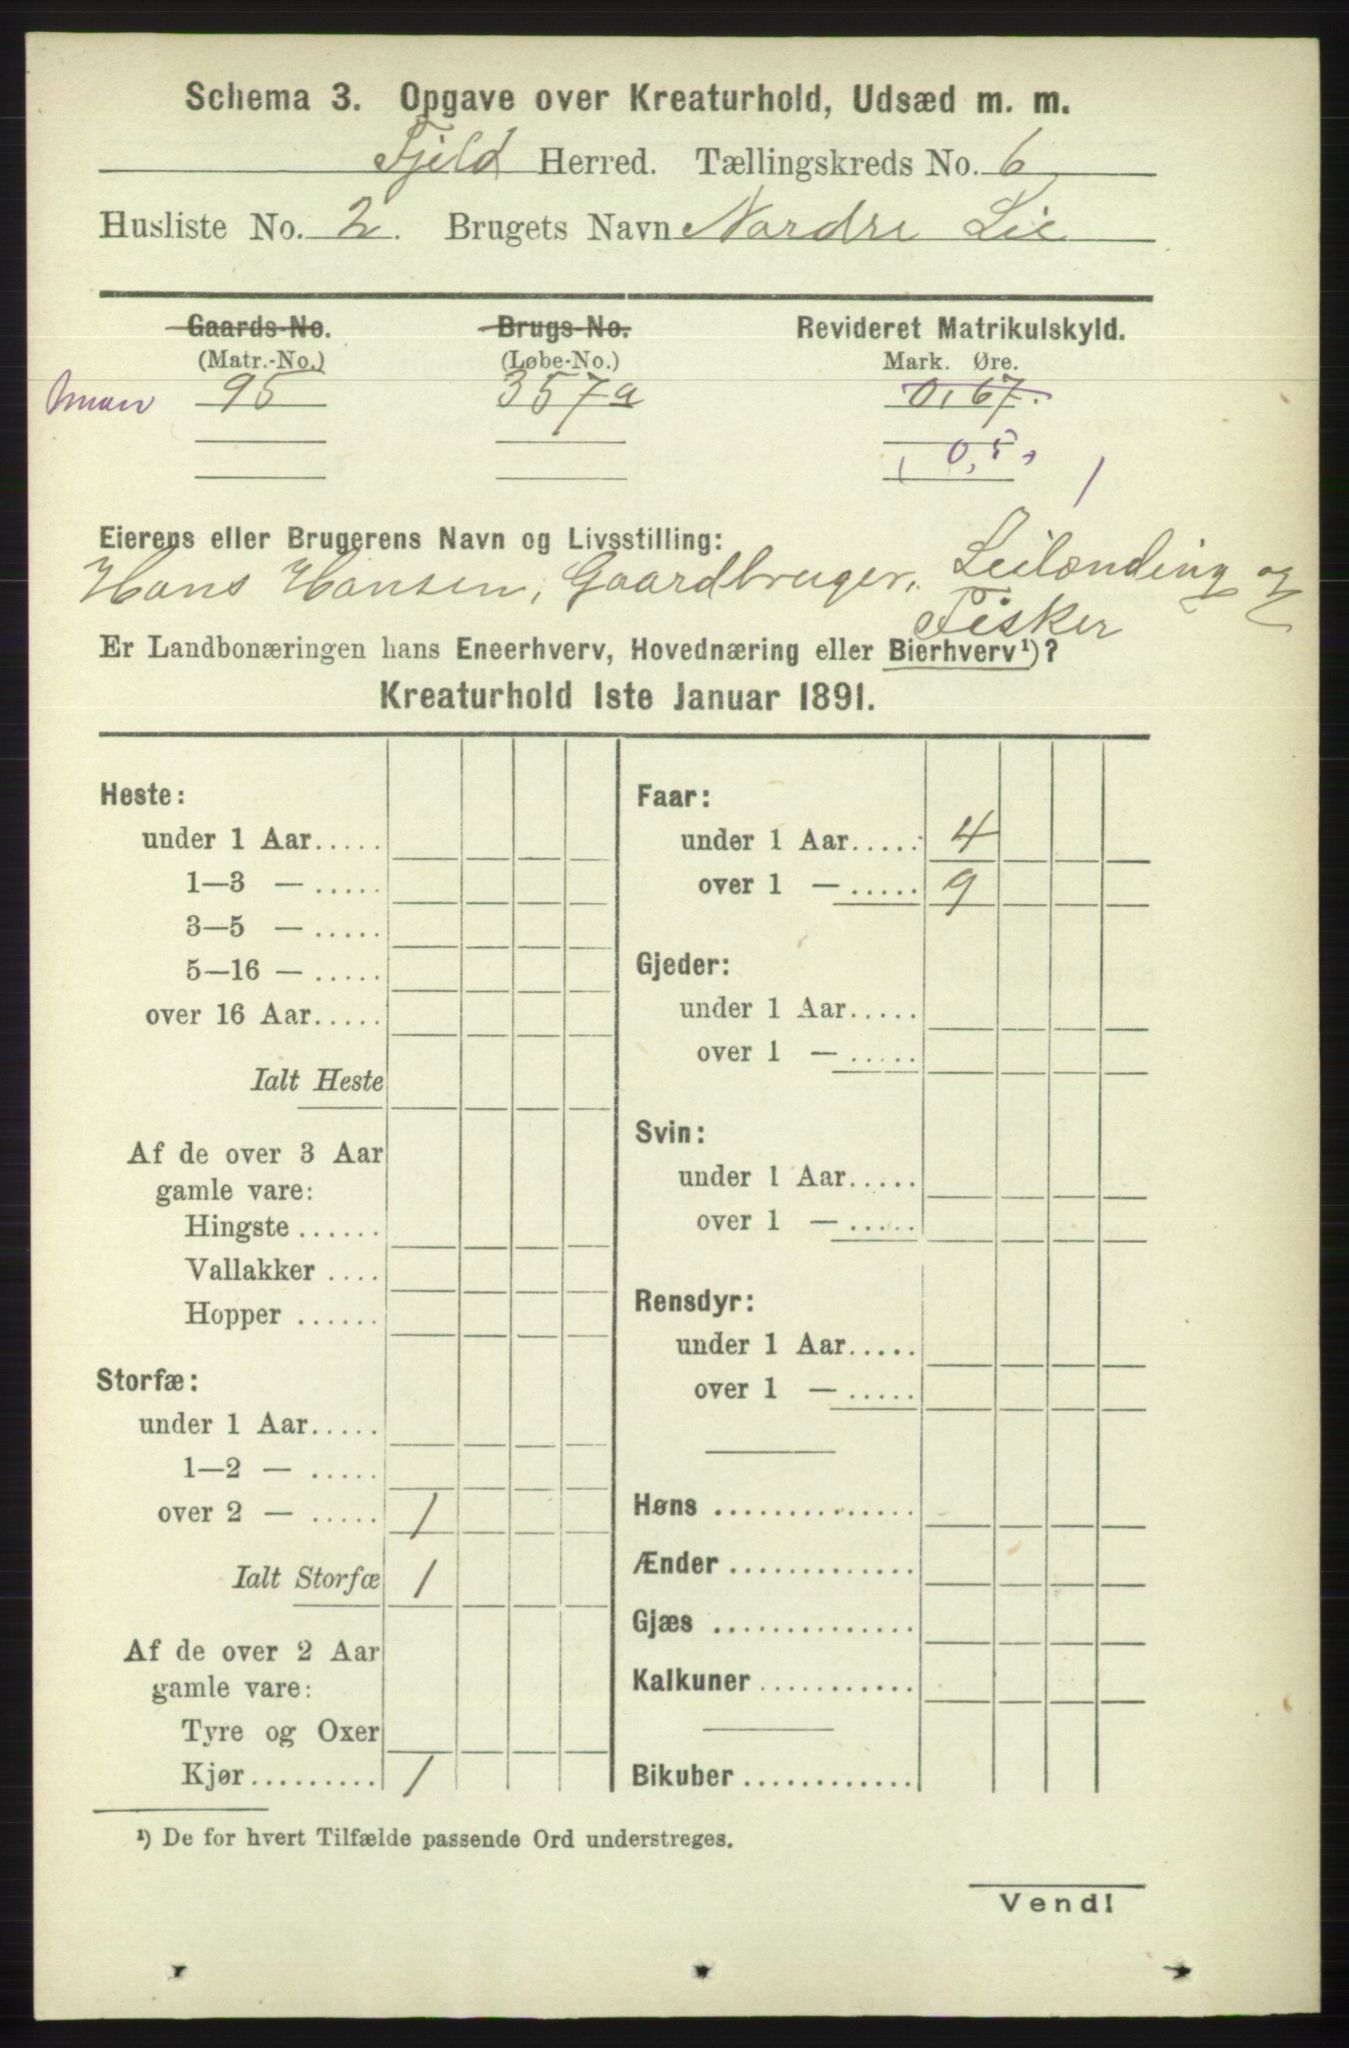 Schema 3. Opgave over Kreaturhold, Udsæd m. m.
Fjeld Herred. Tællingskreds No. 6
Husliste No. 2. Brugets Navn Nordre Lie
Gaards-No. Brugs-No. Revideret Matrikulskyld.
(Matr.-No.) (Løbe-No.) Mark. Øre.
95 357a 0,67.
Eierens eller Brugerens Navn og Livsstilling:
Hans Hansen, Gaardbruger, Leilænding og
Fisker
Er Landbonæringen hans Eneerhverv, Hovednæring eller Bierhverv¹)?
Kreaturhold 1ste Januar 1891.
Heste:
under 1 Aar.....
1—3 — .....
3—5 — .....
5—16 — .....
over 16 Aar.....
Ialt Heste
Af de over 3 Aar
gamle vare:
Hingste ......
Vallakker ....
Hopper ......
Storfæ:
under 1 Aar.....
1—2 — .....
over 2 — ..... 1
Ialt Storfæ 1
Af de over 2 Aar
gamle vare:
Tyre og Oxer
Kjør......... 1
Faar:
under 1 Aar..... 4
over 1 — ..... 9
Gjeder:
under 1 Aar.....
over 1 — .....
Svin:
under 1 Aar.....
over 1 — .....
Rensdyr:
under 1 Aar.....
over 1 — .....
Høns ..............
Ænder .............
Gjæs ..............
Kalkuner ...........
Bikuber ............
¹) De for hvert Tilfælde passende Ord understreges.
Vend!